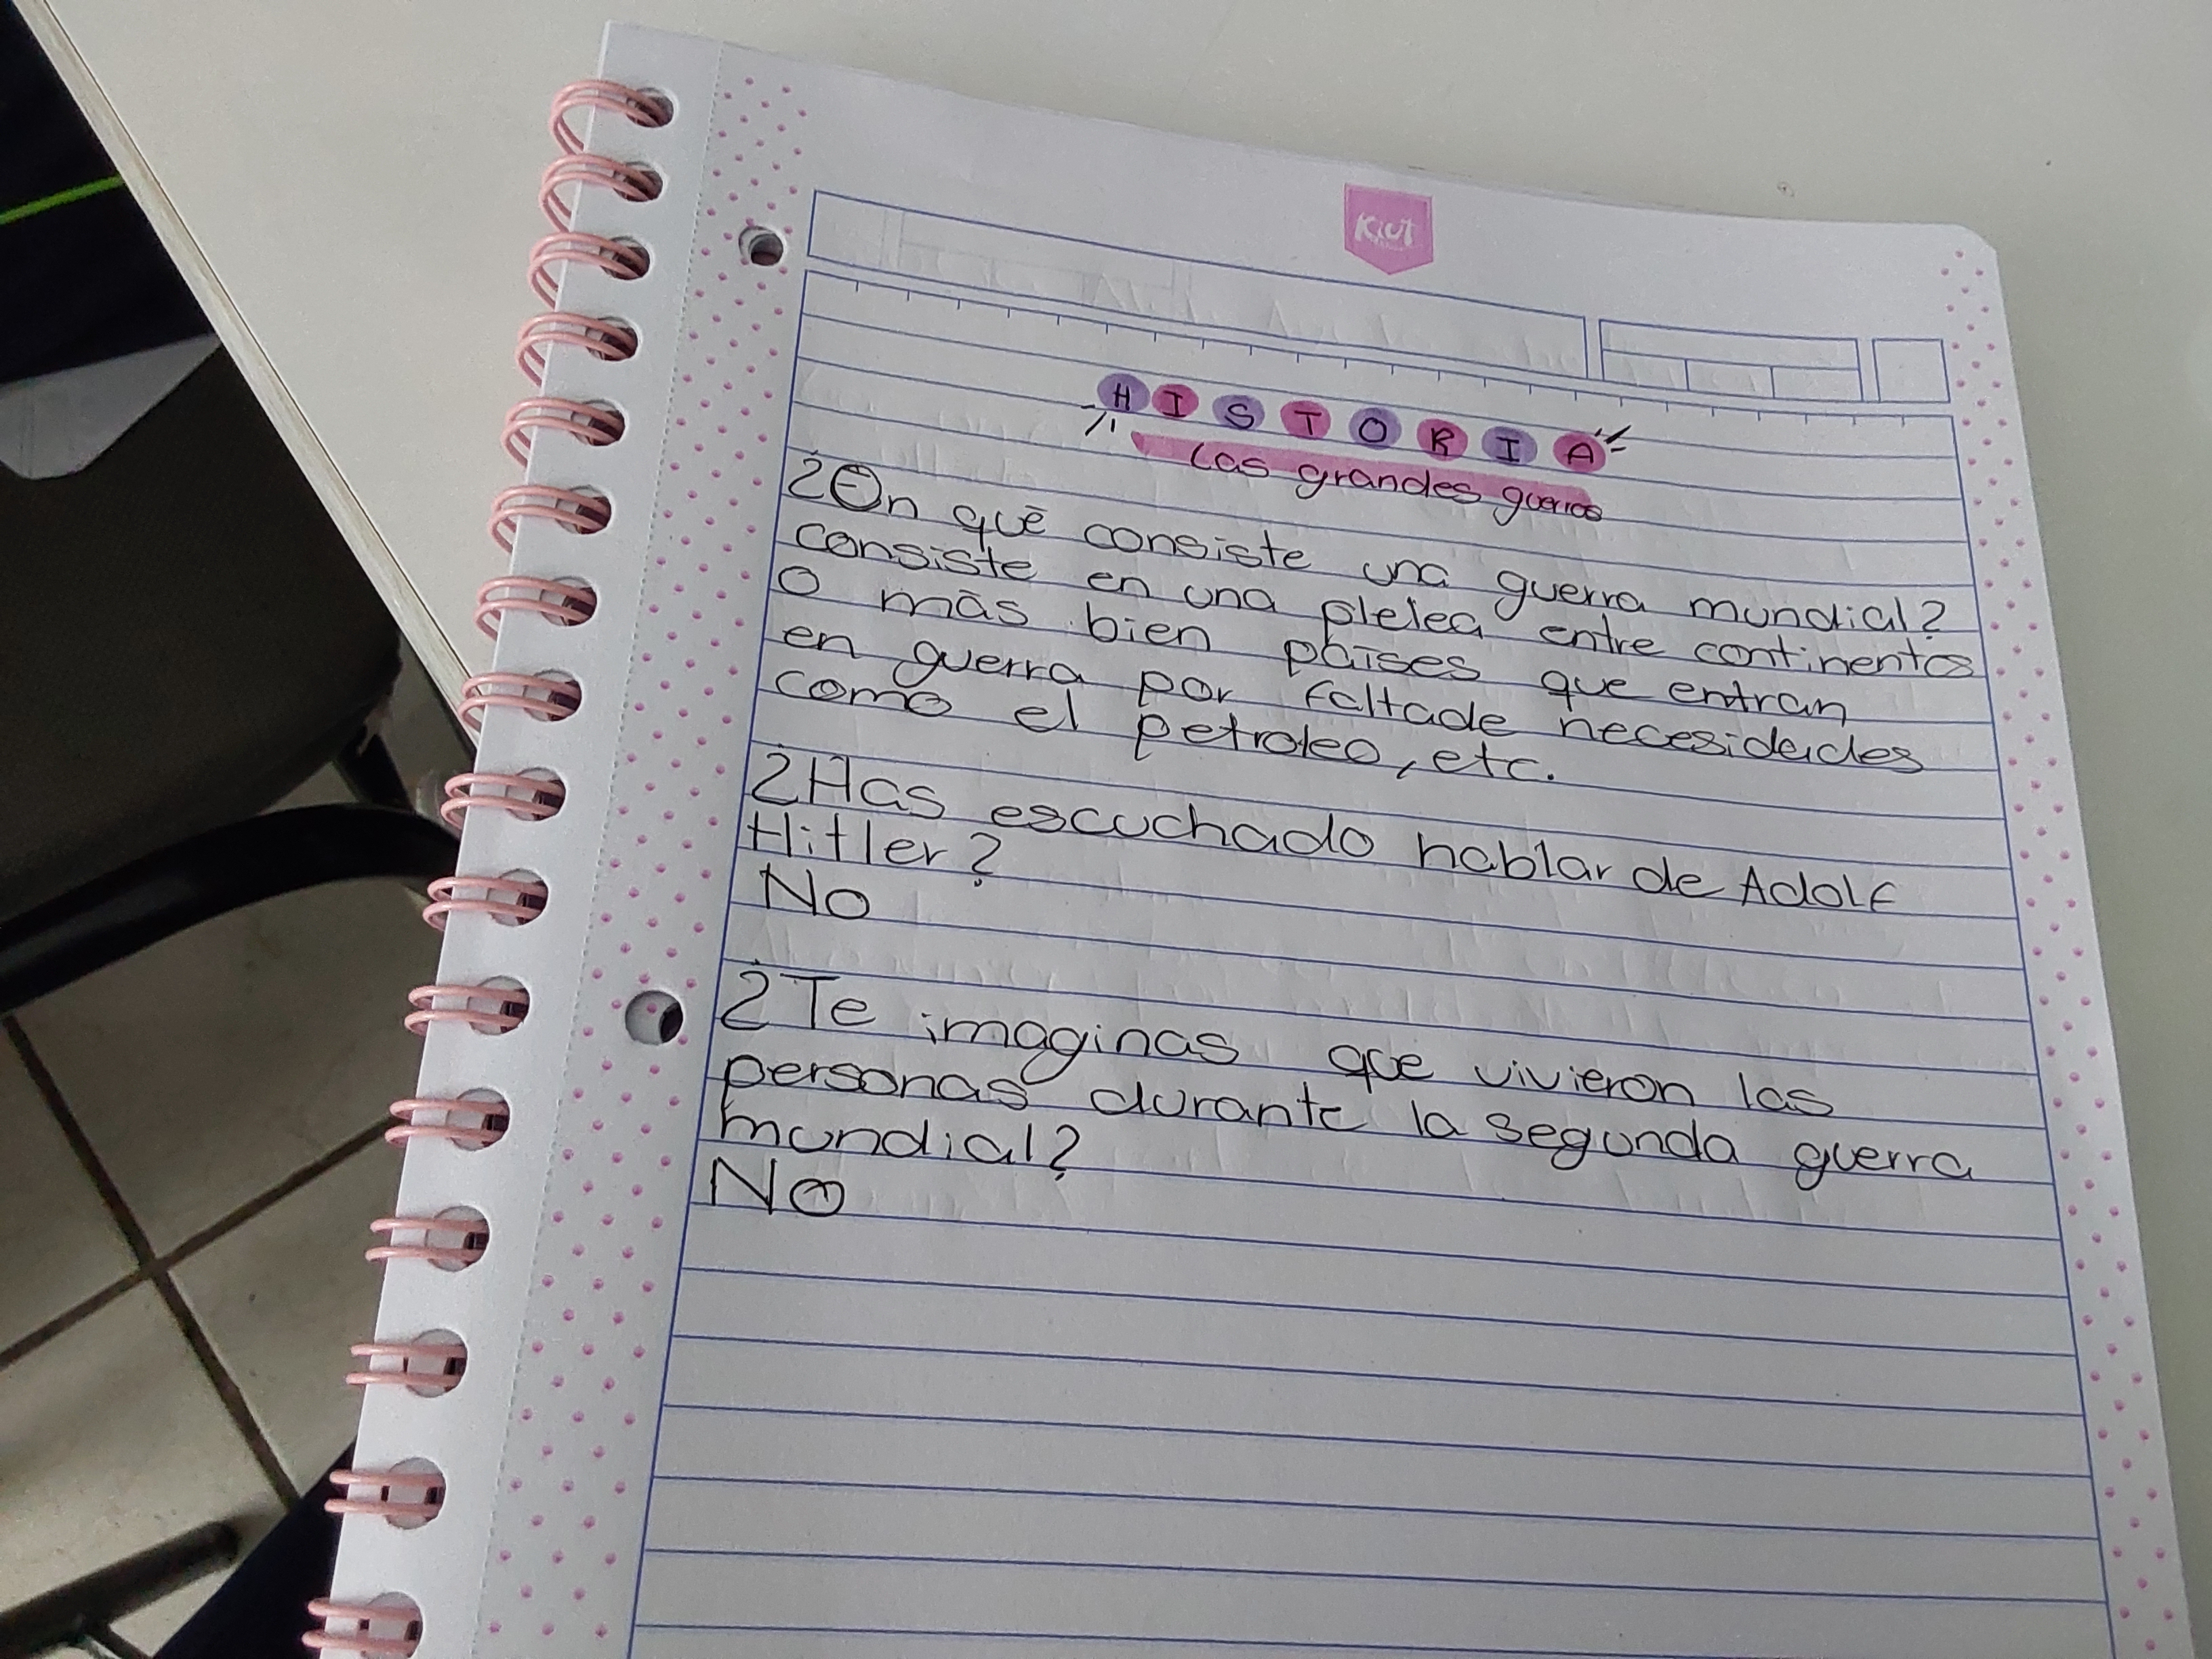 Kiut
HISTORIA
Las grandes guerras
¿En qué consiste una guerra mundial?
consiste en una plelea entre continentes
O más bien países que entran
en guerra por faltade necesidades
como el petroleo, etc.
¿Has escuchado hablar de Adolf
Hitler?
No
¿Te imaginas que vivieron las
personas durante la segunda guerra
mundial?
No